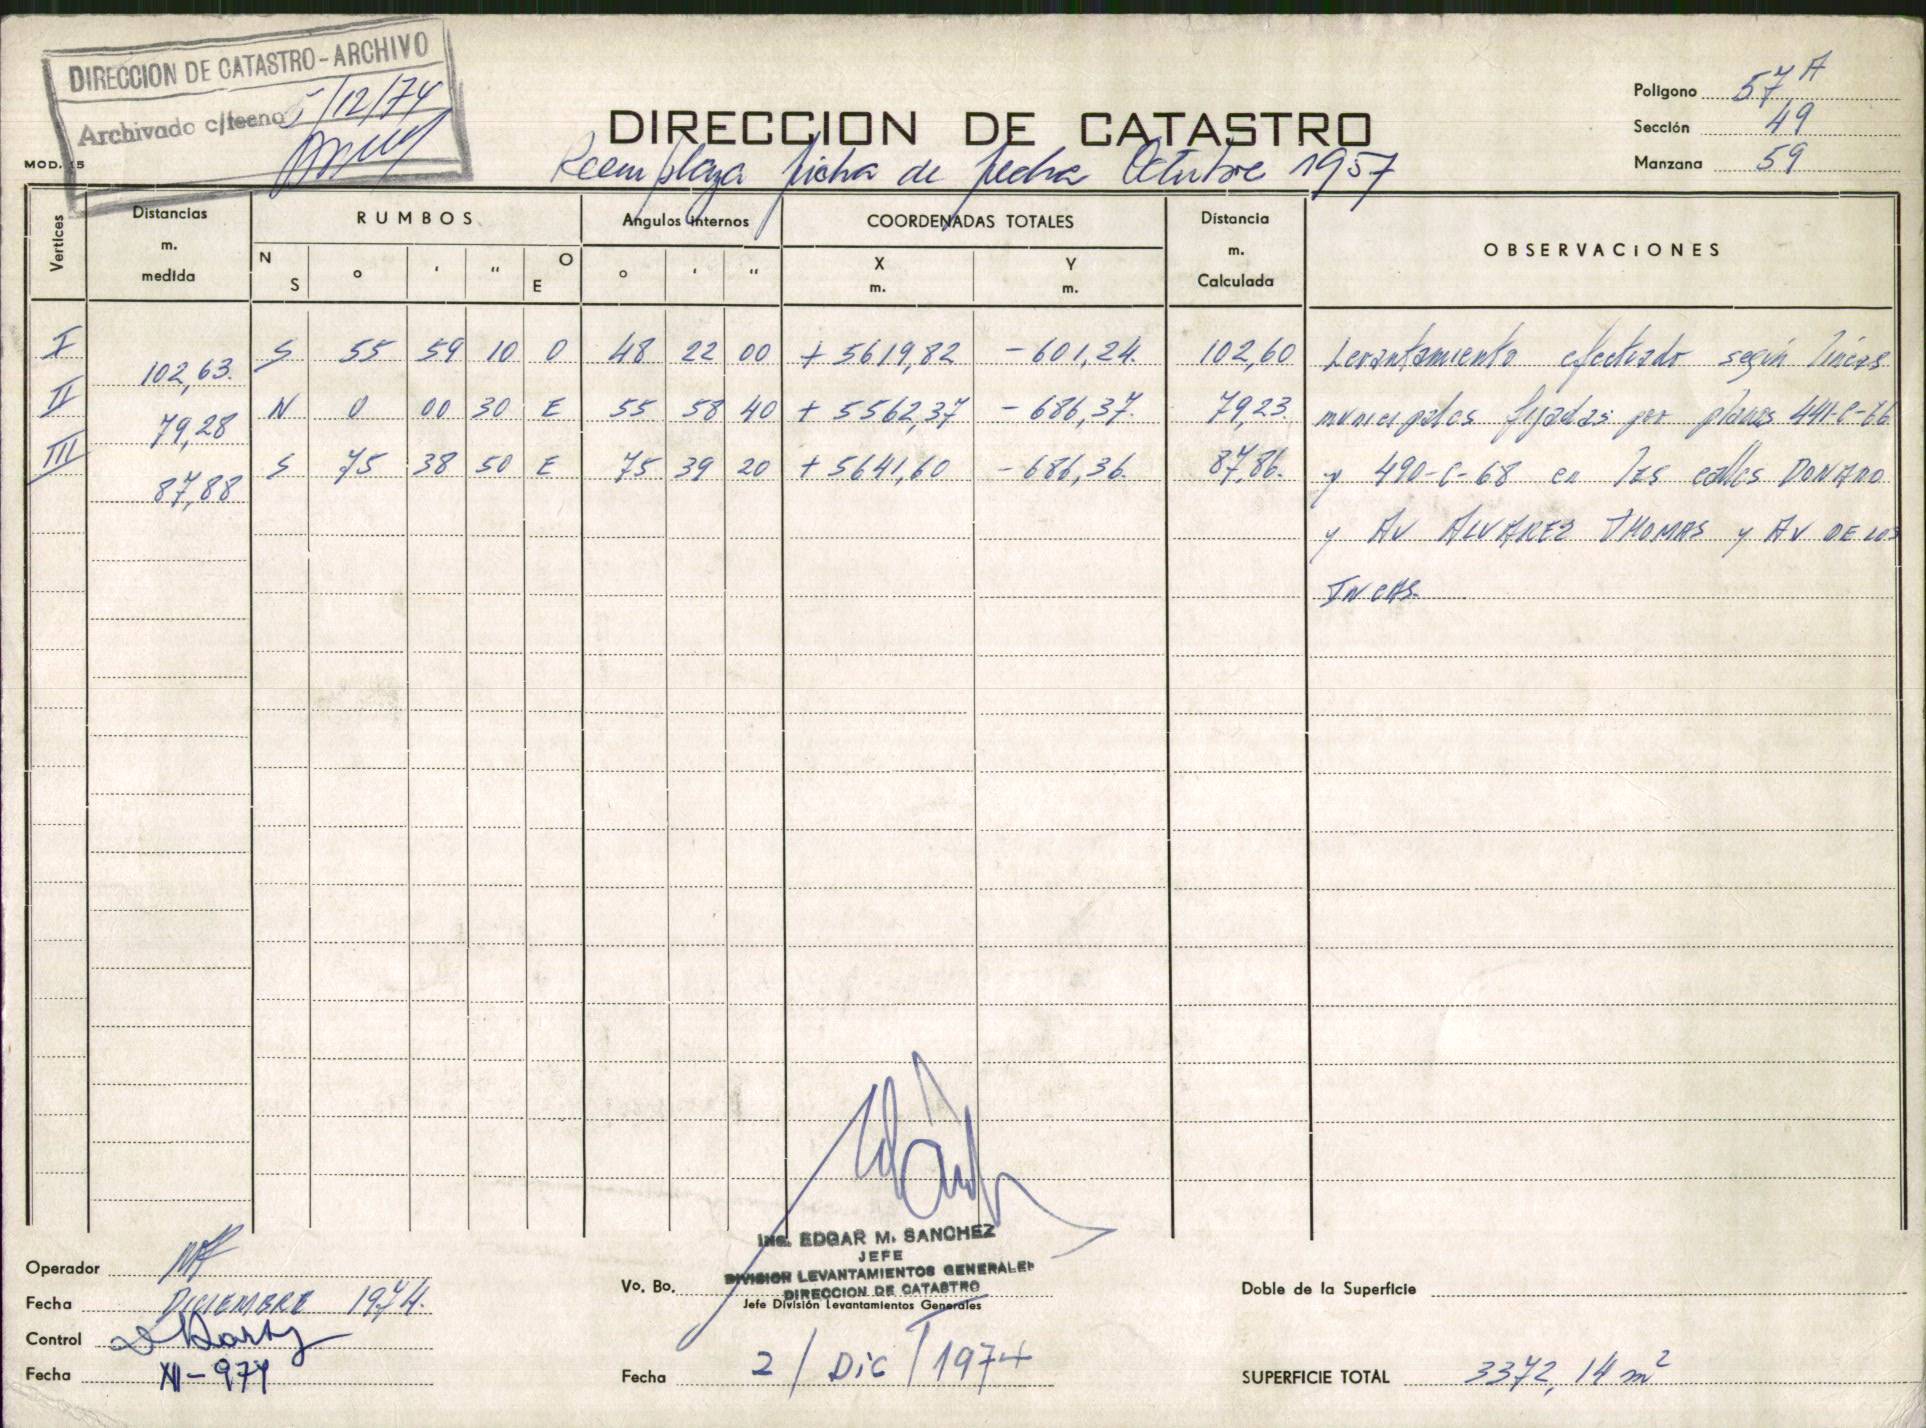 DIRECCION DE CATASTRO-ARCHIVO
Archivado c/fecha 5/12/74
MOD. 15
DIRECCION DE CATASTRO
Reemplaza ficha de fecha Octubre 1957
Poligono 57 A
Sección 49
Manzana 59
Vertices
Distancias m. medida
RUMBOS
N S ° ' " O E
Angulos internos
° ' "
COORDENADAS TOTALES
X m. Y m.
Distancia m. Calculada
OBSERVACIONES
I S 55 59 10 O 48 22 00 + 5619,82 - 601,24 102,60 Levantamiento efectuado según lineas
102,63
II N 0 00 30 E 55 58 40 + 5562,37 - 686,37 79,23 municipales fijadas por planos 441-C-66
79,28
III S 75 38 50 E 75 39 20 + 5641,60 - 686,36 87,86 y 490-C-68 en las calles DONADO
87,88
y AV ALVAREZ THOMAS y AV DE LOS
INCAS.
Operador
Fecha DICIEMBRE 1974.
Control
Fecha XII-974
Ing. EDGAR M. SANCHEZ
JEFE
DIVISION LEVANTAMIENTOS GENERALES
DIRECCION DE CATASTRO
Vo. Bo.
Jefe División Levantamientos Generales
Fecha 2 / Dic / 1974
Doble de la Superficie
SUPERFICIE TOTAL 3372,14 m²